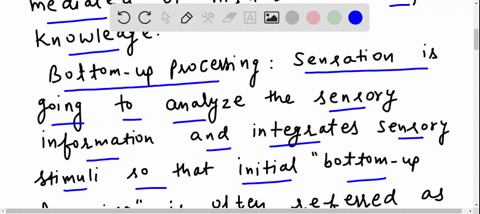 mediated
knowledge.
Bottom-up processing: Sensation is
going to analyze the sensory
information and integrates sensory
stimuli so that initial "bottom-up
is often referred as